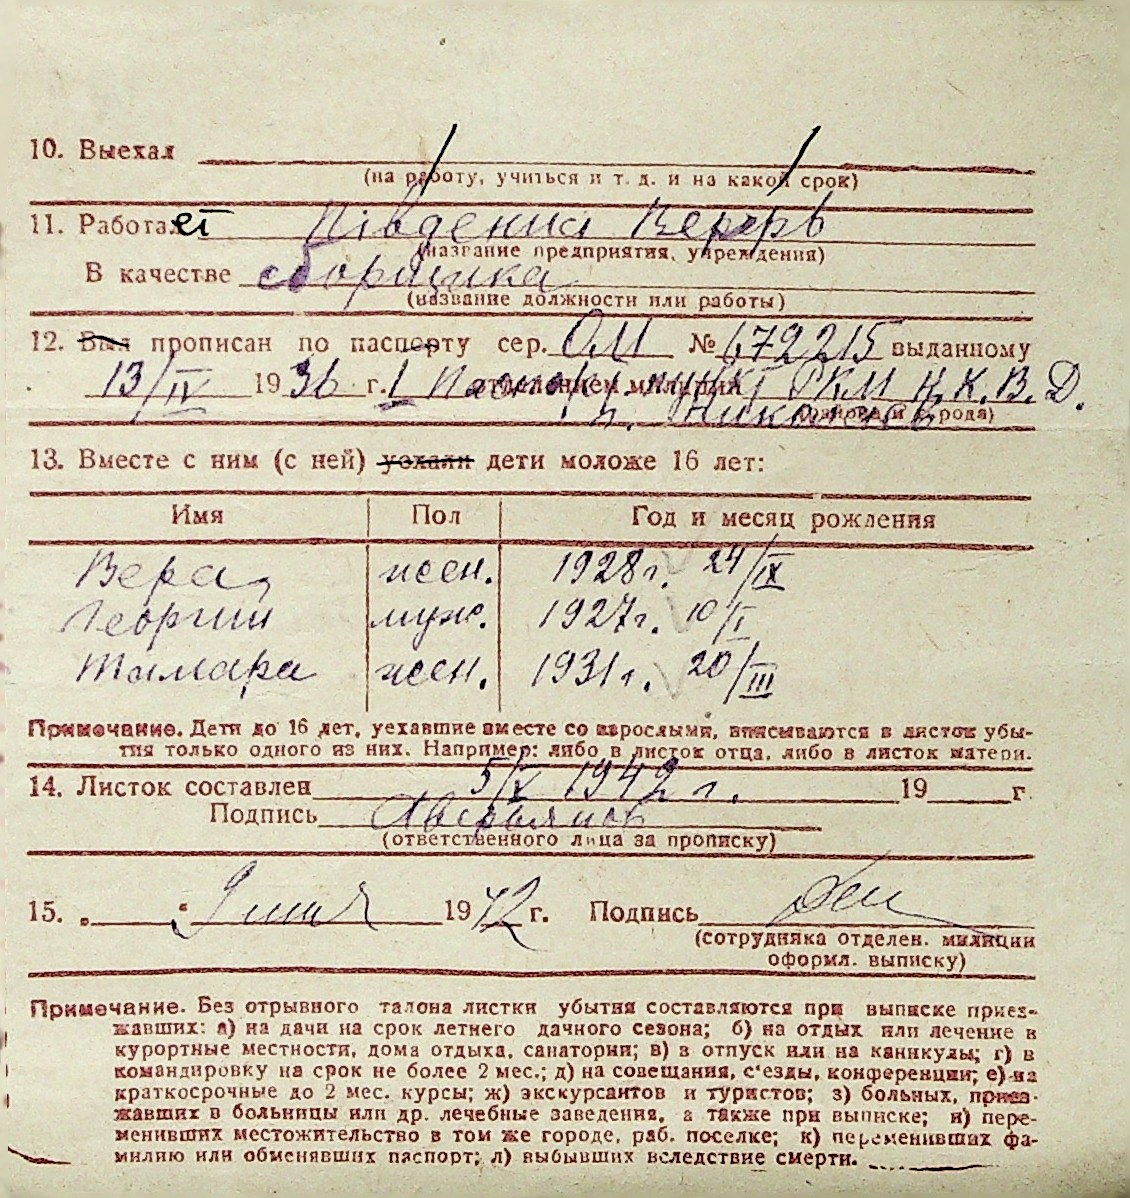 10. Выехал
(на работу, учиться и т. д. и на какой срок)
11. Работает Південна Верфь
(название предприятия, учреждения)
В качестве сборщика
(название должности или работы)
12. Был прописан по паспорту сер. ОМ № 672215 выданному
13/IV 1936 г. I Паспорт. пункт РКМ Н.К.В.Д.
отделением милиции
г. Николаев
(района и города)
13. Вместе с ним (с ней) уехали дети моложе 16 лет:
Имя Пол Год и месяц рождения
Вера жен. 1928 г. 24/IX
Георгий муж. 1927 г. 10/I
Тамара жен. 1931 г. 20/III
Примечание. Дети до 16 лет, уехавшие вместе со взрослыми, вписываются в листок убы-
тия только одного из них. Например: либо в листок отца, либо в листок матери.
14. Листок составлен 5/V 1942 г. 19 г.
Подпись
(ответственного лица за прописку)
15. „ “ 1942 г. Подпись
(сотрудника отделен. милиции
оформл. выписку)
Примечание. Без отрывного талона листки убытия составляются при выписке приез-
жавших: а) на дачи на срок летнего дачного сезона; б) на отдых или лечение в
курортные местности, дома отдыха, санатории; в) в отпуск или на каникулы; г) в
командировку на срок не более 2 мес.; д) на совещания, с'езды, конференции; е) на
краткосрочные до 2 мес. курсы; ж) экскурсантов и туристов; з) больных, приез-
жавших в больницы или др. лечебные заведения, а также при выписке; и) пере-
менивших местожительство в том же городе, раб. поселке; к) переменивших фа-
милию или обменявших паспорт; л) выбывших вследствие смерти.